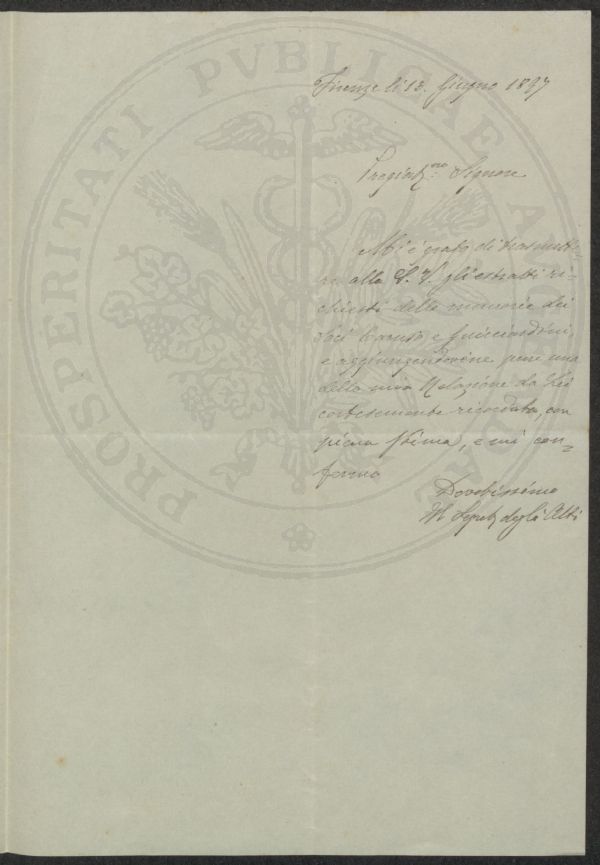 PROSPERITATI PVBLICAE AVGENDAE
Firenze li 13. Giugno 1897
Pregiat.mo Signore
Mi è grato di trasmette-
re alla S. V. gli estratti ri-
chiesti delle memorie dei
Soci Caruso e Guicciardini,
e aggiungendovene pure uno
della mia Relazione da Lei
cortesemente ricordata, con
piena stima, e mi con=
fermo
Devotissimo
Il Segret. degli Atti